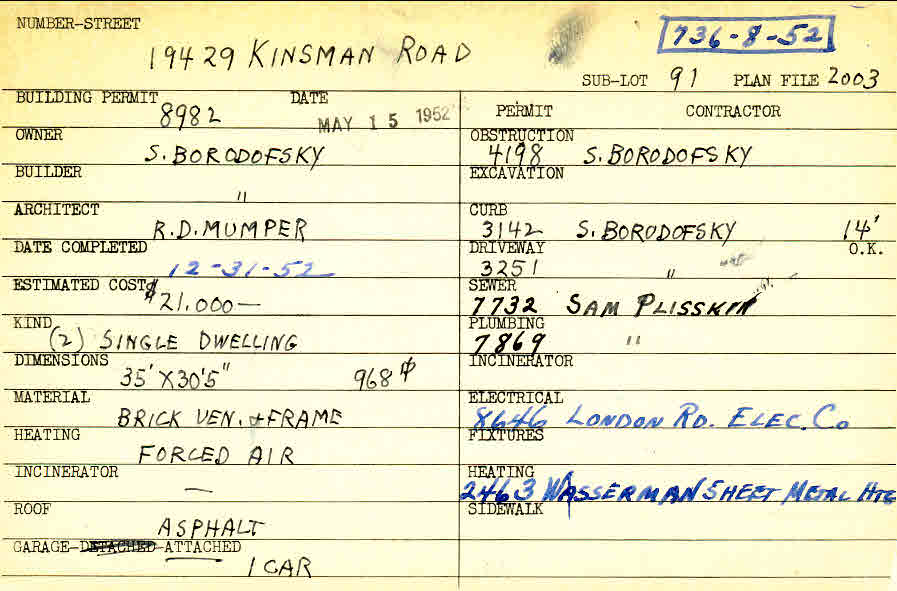 NUMBER-STREET
19429 KINSMAN ROAD
736-8-52
SUB-LOT 91 PLAN FILE 2003
BUILDING PERMIT DATE
8982 MAY 15 1952
OWNER
S. BORODOFSKY
BUILDER
"
ARCHITECT
R.D. MUMPER
DATE COMPLETED
12-31-52
ESTIMATED COST
$21,000—
KIND
(2) SINGLE DWELLING
DIMENSIONS
35' X 30'5" 968 ⌀
MATERIAL
BRICK VEN. & FRAME
HEATING
FORCED AIR
INCINERATOR
—
ROOF
ASPHALT
GARAGE-DETACHED-ATTACHED
1 CAR
PERMIT CONTRACTOR
OBSTRUCTION
4198 S. BORODOFSKY
EXCAVATION
CURB
3142 S. BORODOFSKY 14'
DRIVEWAY O.K.
3251 "
SEWER
7732 SAM PLISSKIN
PLUMBING
7869 "
INCINERATOR
ELECTRICAL
8646 LONDON RD. ELEC. Co
FIXTURES
HEATING
2463 WASSERMAN SHEET METAL HTG
SIDEWALK